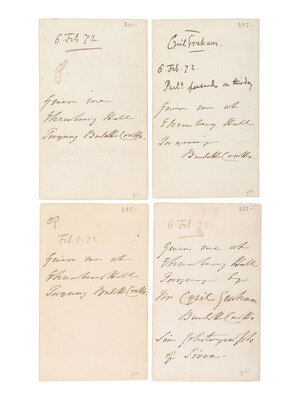 300-
6 Feb 72.
CG.
Given me
Ehrenberg Hall
Torquay Burdett Coutts
395-
Cyril Graham.
6 Feb 72.
opened on this day
Given me at
Ehrenberg Hall
Torquay
Burdett Coutts
CG
Feb. 6. 72
Given me at
Ehrenberg Hall
Torquay Burdett Coutts.
6 Feb 72
Given me at
Ehrenberg Hall
Torquay by
Mr Cyril Graham
Burdett Coutts
Six photographs
of